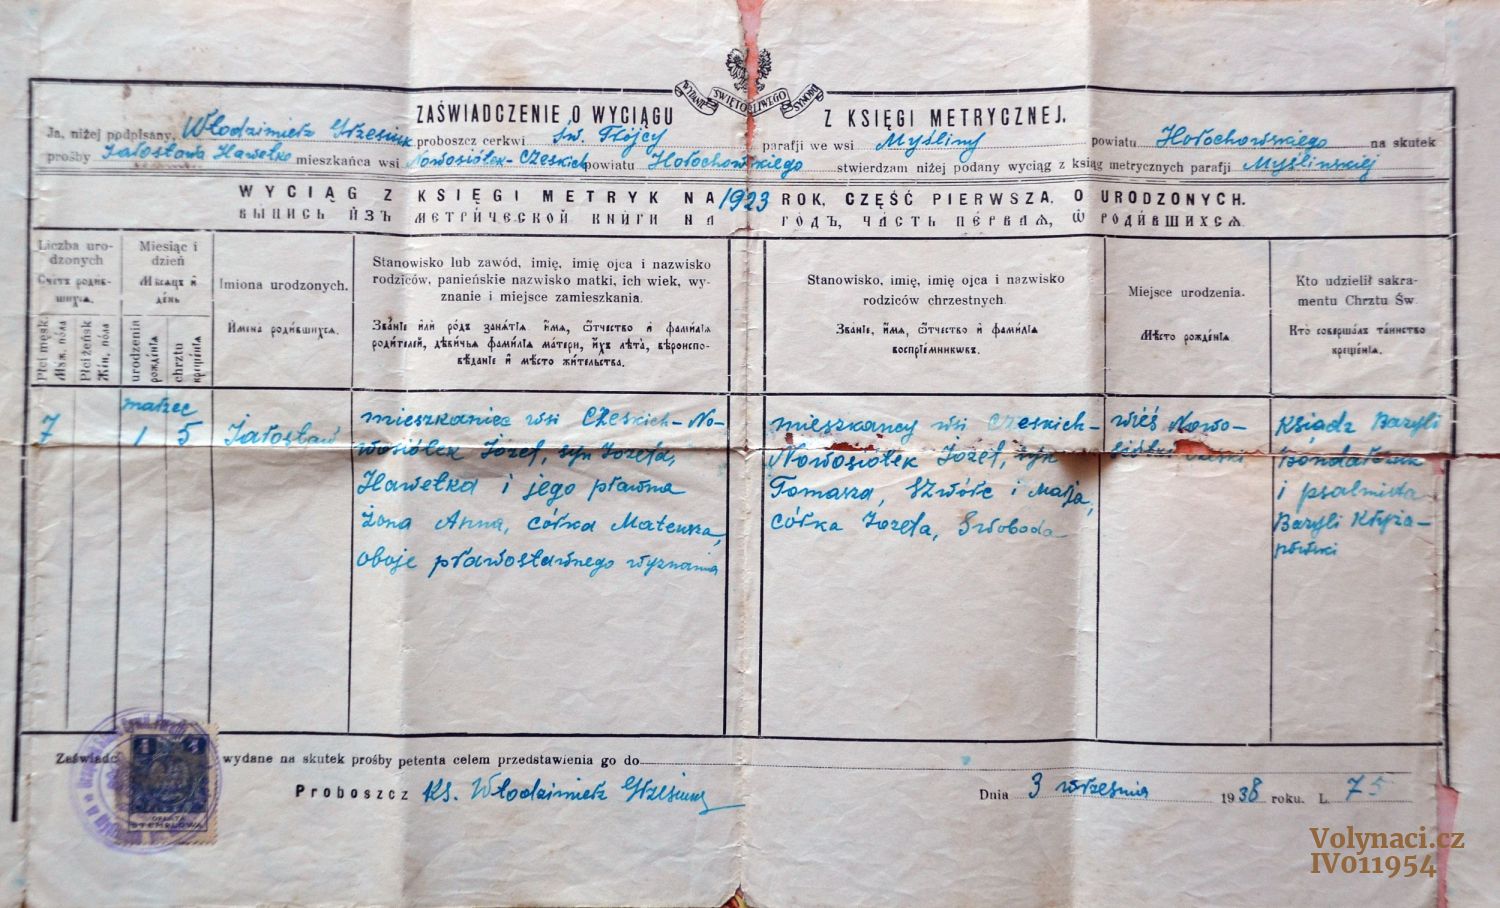 WYDANIE ŚWIĘTOBLIWEGO SYNODU
ZAŚWIADCZENIE O WYCIĄGU Z KSIĘGI METRYCZNEJ.
Ja, niżej podpisany, Włodzimierz Grzesiuk proboszcz cerkwi Św. Trójcy parafji we wsi Myśliny powiatu Horochowskiego na skutek
prośby Jarosława Hawełko mieszkańca wsi Nowosiółek-Czeskich powiatu Horochowskiego stwierdzam niżej podany wyciąg z ksiąg metrycznych parafji Myślinskiej
WYCIĄG Z KSIĘGI METRYK NA 1923 ROK, CZĘŚĆ PIERWSZA, O URODZONYCH.
ВЫПИСЬ ИЗЪ МЕТРИЧЕСКОЙ КНИГИ НА ГОДЪ, ЧАСТЬ ПЕРВАѦ, Ѡ РОДИВШИХСѦ.
Liczba urodzonych
Счетъ родившихсѧ.
Płci męsk.
Мꙋж. пола
Płci żeńsk
Жен. пола
Miesiąc i dzień
Мѣсѧцъ и день
urodzenia
рожденїѧ
chrztu
крещенїѧ
Imiona urodzonych.
Имена родившихсѧ.
Stanowisko lub zawód, imię, imię ojca i nazwisko
rodziców, panieńskie nazwisko matki, ich wiek, wy-
znanie i miejsce zamieszkania.
Званїе или родъ занѧтїѧ. имѧ, ѿчество и фамилїѧ
родителей, дѣвичьѧ фамилїѧ матери, ихъ лѣта, вѣроиспо-
вѣданїе и мѣсто жительства.
Stanowisko, imię, imię ojca i nazwisko
rodziców chrzestnych.
Званїе, имѧ, ѿчество и фамилїѧ
воспрїемникѡвъ.
Miejsce urodzenia.
Мѣсто рожденїѧ
Kto udzielił sakra-
mentu Chrztu Św.
Кто совершалъ таинство
крещенїѧ.
marzec
7 1 5 Jarosław
mieszkaniec wsi Czeskich-No-
wosiółek Józef, syn Józefa,
Hawełka i jego prawna
żona Anna, córka Mateusza,
oboje prawosławnego wyznania
mieszkańcy wsi Czeskich-
Nowosiółek Józef, syn
Tomasza, Szwórc i Marja,
córka Józefa, Swoboda
wieś Nowo-
siółki Czeski
Ksiądz Bazyli
Bondarczuk
i psalmista
Bazyli Kryża-
nowski
Zaświadc wydane na skutek prośby petenta celem przedstawienia go do
Proboszcz Ks. Włodzimierz Grzesiuk
Dnia 3 września 1938 roku. L. 75
1 1
OPŁATA
STEMPLOWA
Volynaci.cz
IV011954